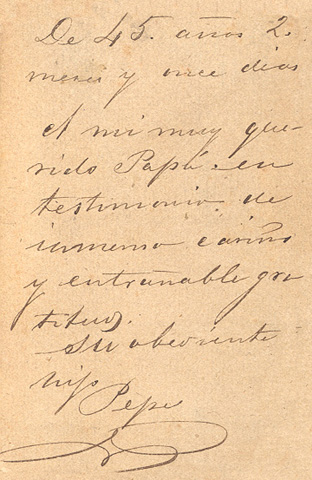 De 45. años 2
meses y once dias
A mi muy que-
rido Papá - en
testimonio de
inmenso cariño
y entrañable gra
titud.
Su obediente
hijo
Pepe